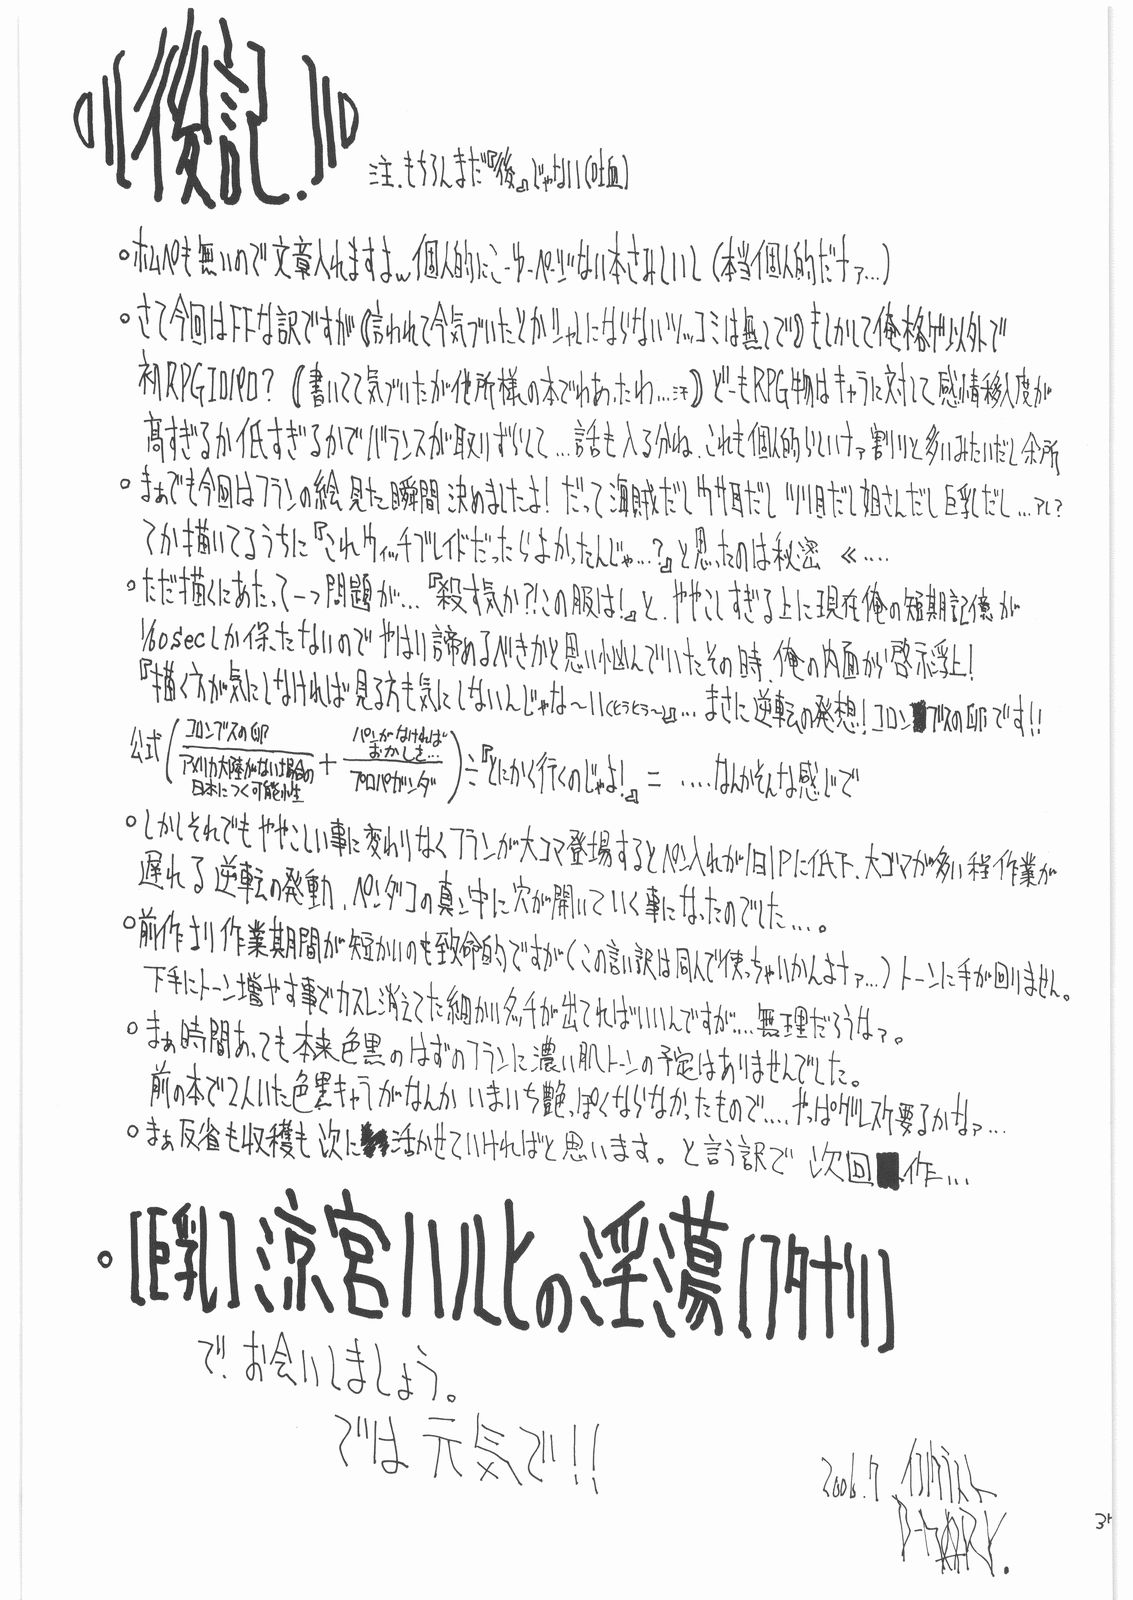 後記.
注.もちろんまだ『後』じゃない(吐血)
。ホムペも無いので文章入れますよぉw 個人的にこーゆーページない本さみしいし (本当個人的だナァ…)
。さて今回はFFな訳ですが《言われて今気づいたとかシャレにならないツッコミは無しで》もしかして俺格ゲ以外で
初RPGエロパロ?《書いてて気づいたが他所様の本でわあったわ…汗》どーもRPG物はキャラに対して感情移入度が
高すぎるか低すぎるかでバランスが取りずらくて…話も入る分ね、これも個人的らしいナァ割りと多いみたいだし余所
。まぁでも今回はフランの絵見た瞬間決めましたよ! だって海賊だしウサ耳だしツリ目だし姐さんだし巨乳だし…アレ?
てか描いてるうちに『これウィッチブレイドだったらよかったんじゃ…?』と思ったのは秘密 《‥‥
。ただ描くにあたって一つ問題が…『殺す気か?!この服は!』と、ややこしすぎる上に現在俺の短期記憶が
1/60secしか保たないので やはり諦めるべきかと思い悩んでいたその時、俺の内面から啓示浮上!
『描く方が気にしなければ見る方も気にしないんじゃな〜い(ヒラヒラ〜)』… まさに逆転の発想! コロンブスの卵です!!
公式(コロンブスの卵/アメリカ大陸がない場合の日本につく可能性 + パンがなければおかしを…/プロパガンダ)÷『とにかく行くのじゃよ!』= ‥‥なんかそんな感じで
。しかしそれでもややこしい事に変わりなくフランが大コマ登場するとペン入れが1日1Pに低下、大ゴマが多い程作業が
遅れる逆転の発動、ペンダコの真ン中に穴が開いていく事になったのでした‥‥。
。前作より作業期間が短かいのも致命的ですが(この言い訳は同人で使っちゃいかんよナァ…)トーンに手が回りません。
下手にトーン増やす事でカスレ消えてた細かいタッチが出てればいいんですが‥‥無理だろうなァ。
。まぁ時間あっても本来色黒のはずのフランに濃い肌トーンの予定はありませんでした。
前の本で2人いた色黒キャラがなんかいまいち艶っぽくならなかったもので‥‥やっぱグレスケ要るかなァ…
。まぁ反省も収穫も次に活かせていければと思います。と言う訳で 次回 作…
。[巨乳]涼宮ハルヒの淫蕩[フタナリ]
で、お会いしましょう。
では元気で!!
2006.7